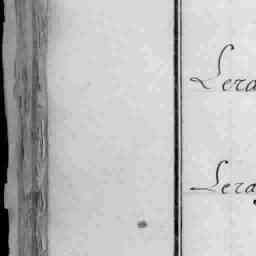 Lera
Lera